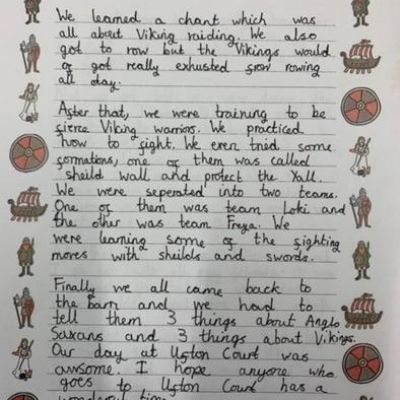 We learned a chant which was
all about Viking raiding. We also
got to row but the Vikings would
of got really exhusted from rowing
all day.
After that, we were training to be
fierce Viking warriors. We practiced
how to fight. We even tried some
formations, one of them was called
sheild wall and protect the Yall.
We were seperated into two teams.
One of them was team Loki and
the other was team Freya. We
were learning some of the fighting
moves with sheilds and swords.
Finally we all came back to
the barn and we had to
tell them 3 things about Anglo
Saxans and 3 things about Vikings.
Our day at Ufton Court was
awsome. I hope anyone who
goes to Ufton Court has a
wonderful time